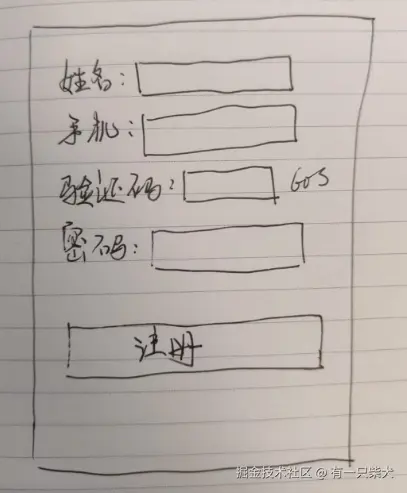 姓名:
手机:
验证码: 60S
密码:
注册
掘金技术社区 @ 有一只柴犬